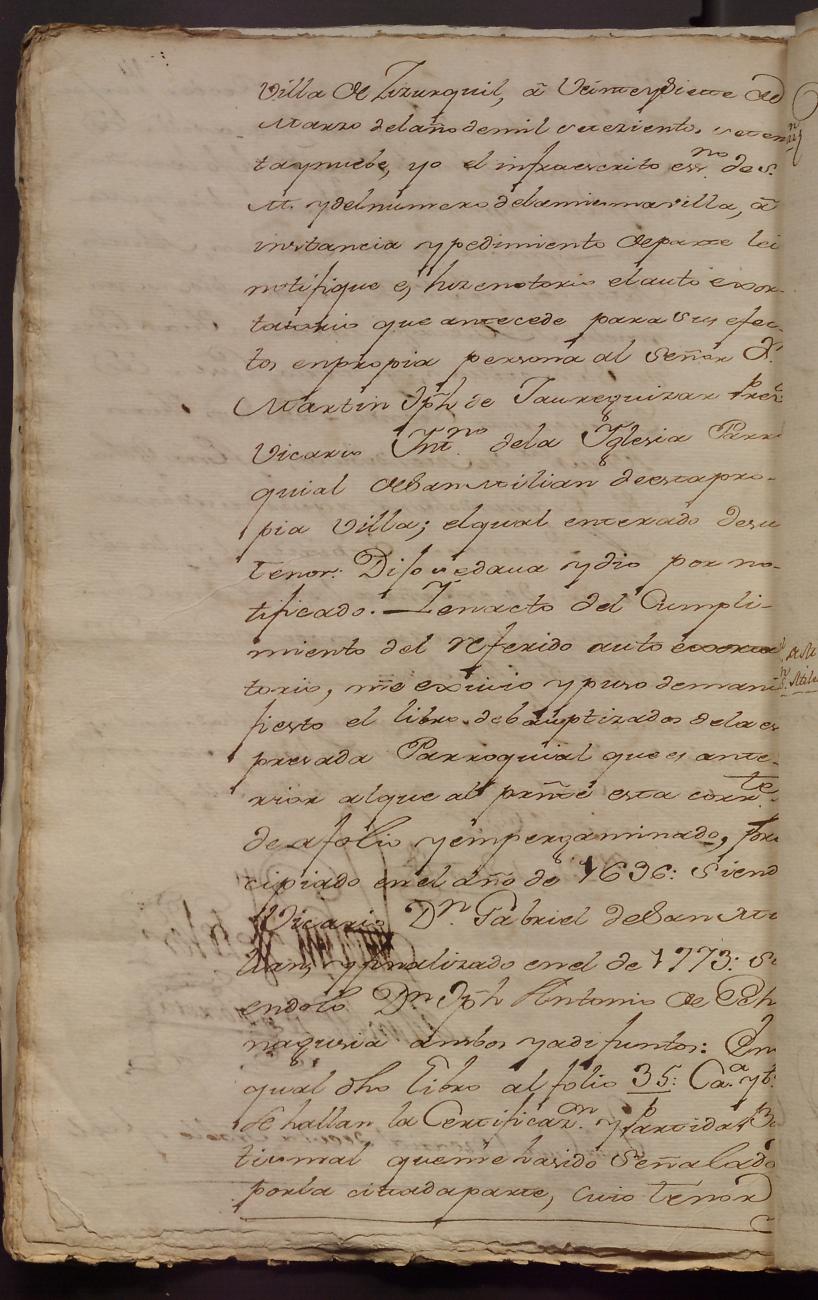 Villa de Zizurquil, â Veinte y Siette de
Marzo del año de mil setezientos seten
ta y nuebe, yo el infraescrito ess.no de S.
M. y del numero dela misma villa, â
instancia y pedimiento de parte le i
notifique e, hize notorio el auto exor-
tatorio que antecede para sus efec-
tos en propia persona al Señor D.
Martin Jph de Jaureguizar Pres
Vicario Int.no dela Yglesia Parr
quial de San Milian de esta pro-
pia Villa; el qual enterado de su
tenor: Dijo se daua y dio por no-
tificado. Y en acto del Cumpli-
miento del referido auto exorta
torio, me exiuio y puso de mani
fiesto el libro de bauptizados dela es
presada Parroquial que es ante-
rior al que al prñte esta corr.te
de a folio y empergaminado, prin
cipiado en el año de 1696: Siend
Vicario Dn. Gabriel de San Mi
lian, y finalizado en el de 1773: Si
endolo Dn. Jph Antonio de Ech
nagusia ambos ya difuntos: En
qual dho Libro al folio 35: Ca.a yt.
se hallan la Certificaz.on y partida B
tismal que me ha sido Señalado
por la citada parte, cuio tenor